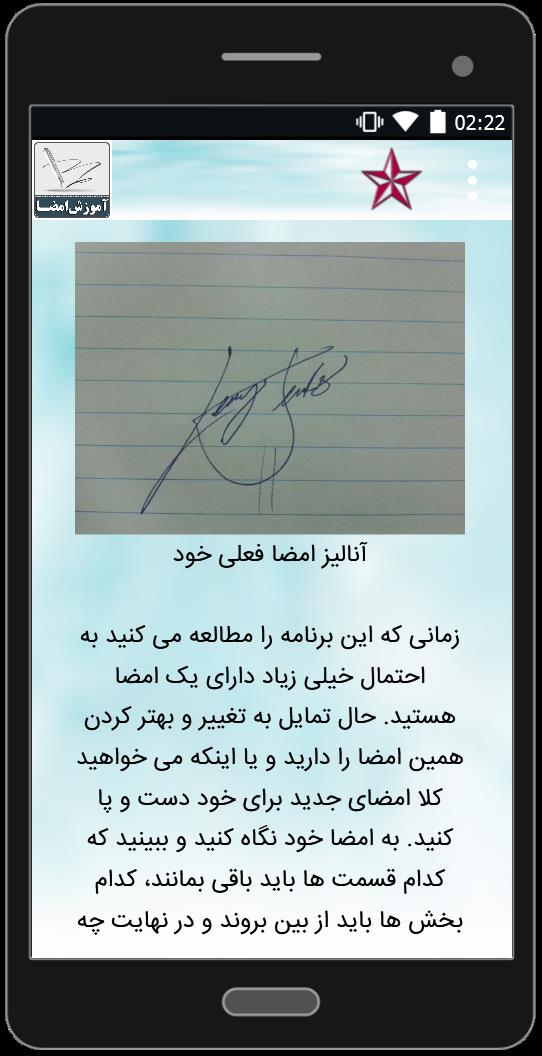 02:22
آموزش امضا
آنالیز امضا فعلی خود
زمانی که این برنامه را مطالعه می کنید به
احتمال خیلی زیاد دارای یک امضا
هستید. حال تمایل به تغییر و بهتر کردن
همین امضا را دارید و یا اینکه می خواهید
کلا امضای جدید برای خود دست و پا
کنید. به امضا خود نگاه کنید و ببینید که
کدام قسمت ها باید باقی بمانند، کدام
بخش ها باید از بین بروند و در نهایت چه